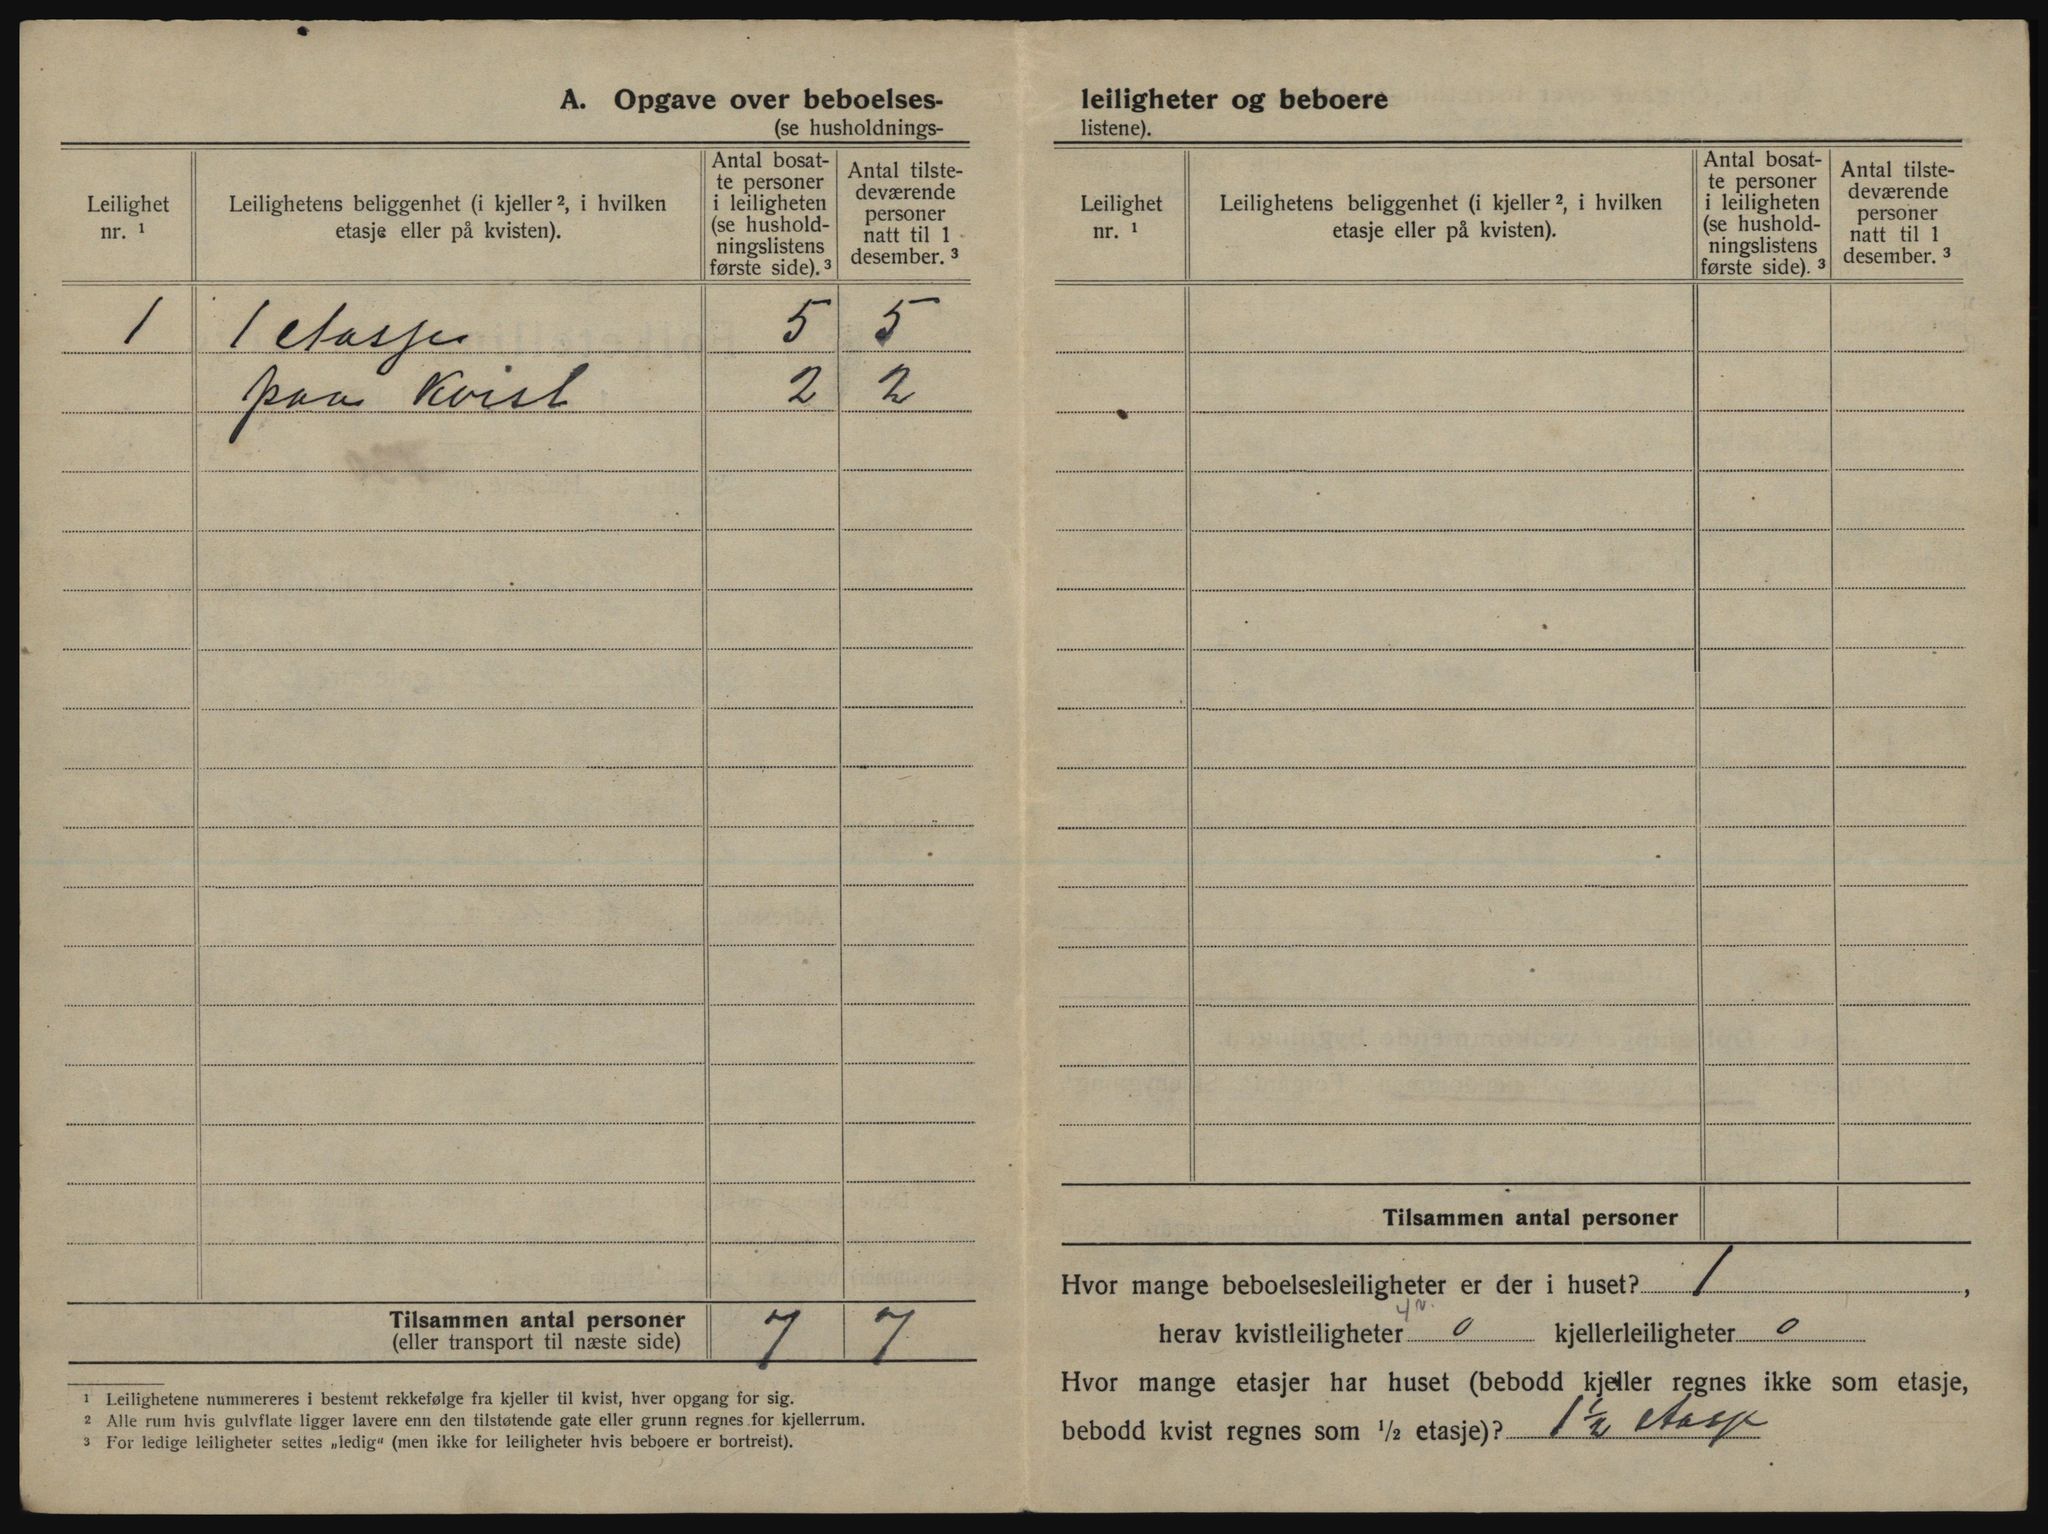 A. Opgave over beboelses-
(se husholdnings-
Leilighet
nr. ¹
Leilighetens beliggenhet (i kjeller ², i hvilken
etasje eller på kvisten).
Antal bosat-
te personer
i leiligheten
(se hushold-
ningslistens
første side). ³
Antal tilste-
deværende
personer
natt til 1
desember. ³
1 1 etasje 5 5
paa Kvist 2 2
Tilsammen antal personer 7 7
(eller transport til næste side)
¹ Leilighetene nummereres i bestemt rekkefølge fra kjeller til kvist, hver opgang for sig.
² Alle rum hvis gulvflate ligger lavere enn den tilstøtende gate eller grunn regnes for kjellerrum.
³ For ledige leiligheter settes „ledig“ (men ikke for leiligheter hvis beboere er bortreist).
leiligheter og beboere
listene).
Leilighet
nr. ¹
Leilighetens beliggenhet (i kjeller ², i hvilken
etasje eller på kvisten).
Antal bosat-
te personer
i leiligheten
(se hushold-
ningslistens
første side). ³
Antal tilste-
deværende
personer
natt til 1
desember. ³
Tilsammen antal personer
Hvor mange beboelsesleiligheter er der i huset? 1,
herav kvistleiligheter 0 kjellerleiligheter 0
Hvor mange etasjer har huset (bebodd kjeller regnes ikke som etasje,
bebodd kvist regnes som ½ etasje)? 1½ etasje